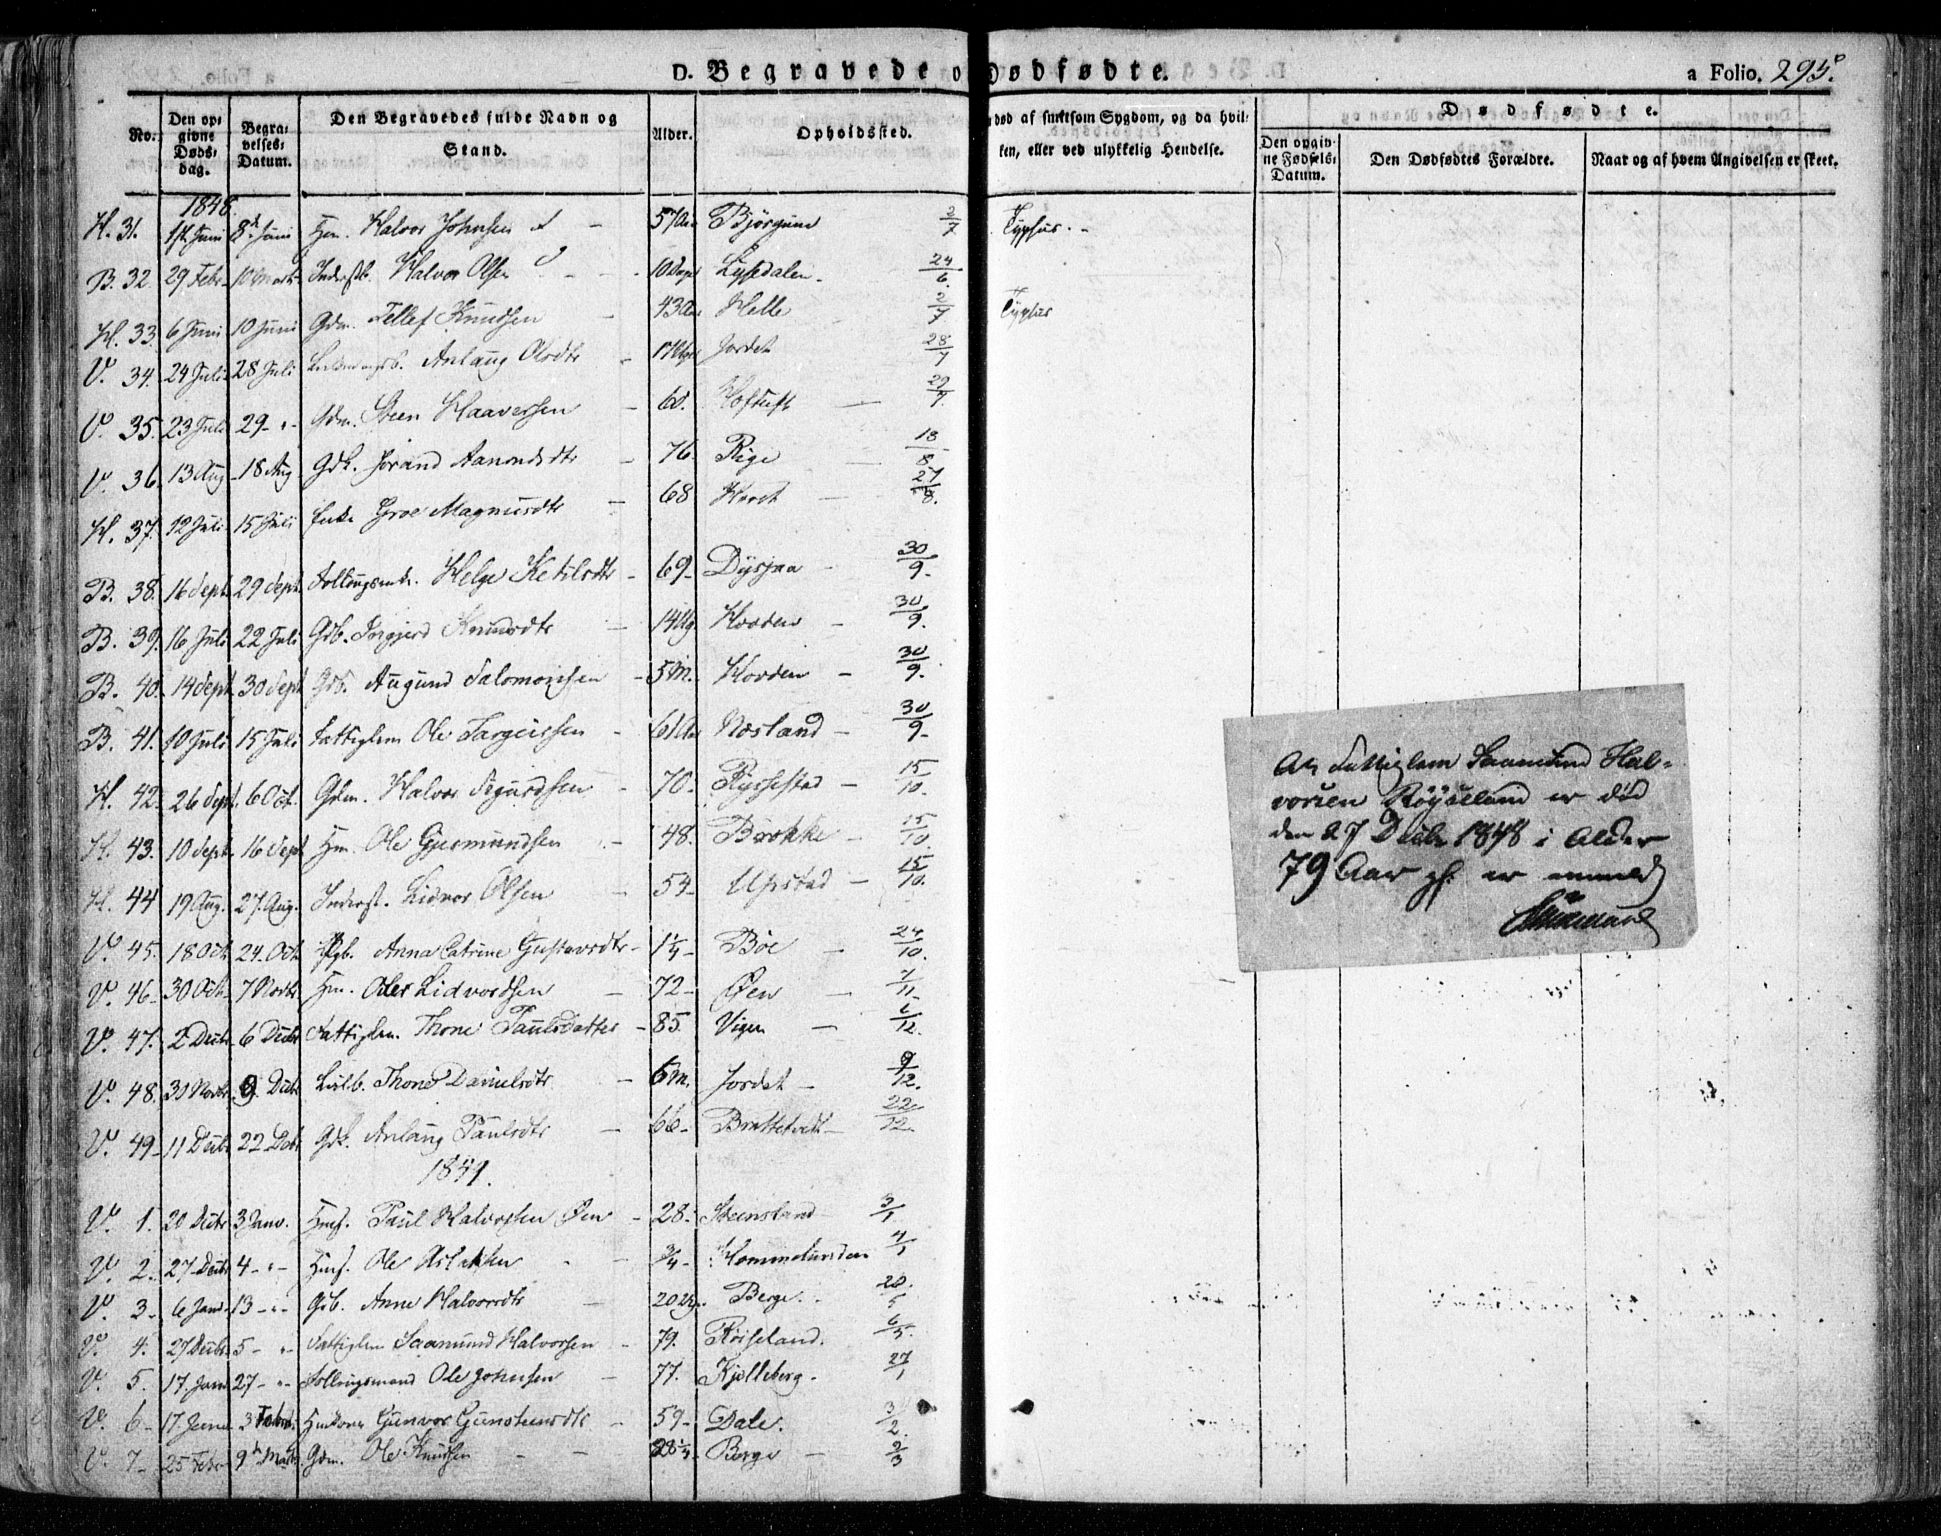 D. Begravede o Dødfødte. a Folio. 295.
No. Den opgivne Dødsdag. Begravelses-Datum. Den Begravedes fulde Navn og Stand. Alder. Opholdssted. død af smitsom Sygdom, og da hvilken, eller ved ulykkelig Hendelse. Dødfødte. Den opgivne Fødsels-Datum. Den Dødfødtes Forældre. Naar og af hvem Angivelsen er skeet.
1848.
H. 31. 1ste Juni 8de Juni Hm. Halvor Johnsen 57 Aar Bjørgum 2/7 Typhus.
B. 32. 29 Febr. 10 Marts Inderstb. Halvor Olsen 10 Dage Lysedalen. 24/6.
H. 33. 6 Juni 10 Juni Gdm. Tellef Knudsen 43 Aar Helle 2/7 Typhus
V. 34. 24 Juli 28 Juli Anlaug Olsdtr Jordet 28/7
V. 35. 23 Juli 29 - " - Gdm. Steen Haavorsen 60. Hoftuft 29/7.
V. 36. 13 Aug 18 Aug Gdk. Jorand Aanondsdtr 76. Rige 18/8
H. 37. 12 Juli 15 Juli Enke Groe Magnusdtr 68 27/8.
B. 38. 16 Sept. 29 Sept. Helge Ketilsdtr 69 - Dysjaa 30/9.
B. 39. 16 Juli 22 Juli Gdb. Ingjerd Knudsdtr 14 Ug. Hovden 30/9.
B. 40. 14 Sept. 30 Sept Gdb. Augund Salomonsen - 5 M. Hovden - 30/9.
B. 41. 10 Juli 15 Juli Fattiglem Ole Targeissen - 61 Aar Nosland - 30/9 -
H. 42. 26 Sept. 6 Oct. Gdm. Halvor Sigurdsen - 70. Rysstad - 15/10.
H. 43. 10 Sept. 16 Sept Hm. Ole Gjermundsen 48. Brokke - 15/10.
H. 44 19 Aug. 27. Aug. Inderst. Lidvor Olsen 54 - Upstad - 15/10.
V. 45. 18 Oct. 24. Oct. Anna Catrine Gustavsdtr - 1 1/4 - Bøe 24/10.
V. 46 - 30 Oct. 7 Novbr Hm. Lidvordsen 72 - Øen 7/11 -
V. 47. 2 Decbr 6 Decbr Fattiglem. Thone Paulsdatter - 85. Vigen 6/12.
V. 48. 30 Novbr 9. Decbr Thone Danielsdtr 6 M. Jordet - 9/12.
V. 49 - 11 Decbr 22 Decbr Gdk. Anlaug Paulsdtr 66 - Brottetveit 22/12.
1849.
V. 1. 20 Decbr 3 Janv. Hmf. Paul Halvorsen Øen - 28. Steensland 3/1
V. 2. 27 Decbr 4 - " - Hmf. Ole Aslaksen 3/4 - 4/1
V. 3 - 6 Jan 13 - " - Gdb. Anne Halvorsdtr Berge. 20./5
V. 4. 27 Decbr 5 - " - Fattiglem Saamund Halvorsen - 79. Røiseland. 6/5.
V. 5. 17. Janv 27 - " - Follougsmand Ole Johnsen 77. Kjelleberg. 27/1
V. 6 - 17 3 Febr. Huuskone Gunvor Gunsteensdtr 59 - Dale. 3/2.
V. 7 - 25 Febr 9de Marts Gdm. Ole Knudsen 28 1/4 - Berge 9/3
At Fattiglem Saamund Hal-
vorsen Røyseland er død
den 27 Decbr 1848 i Alder
79 Aar er anmeldt